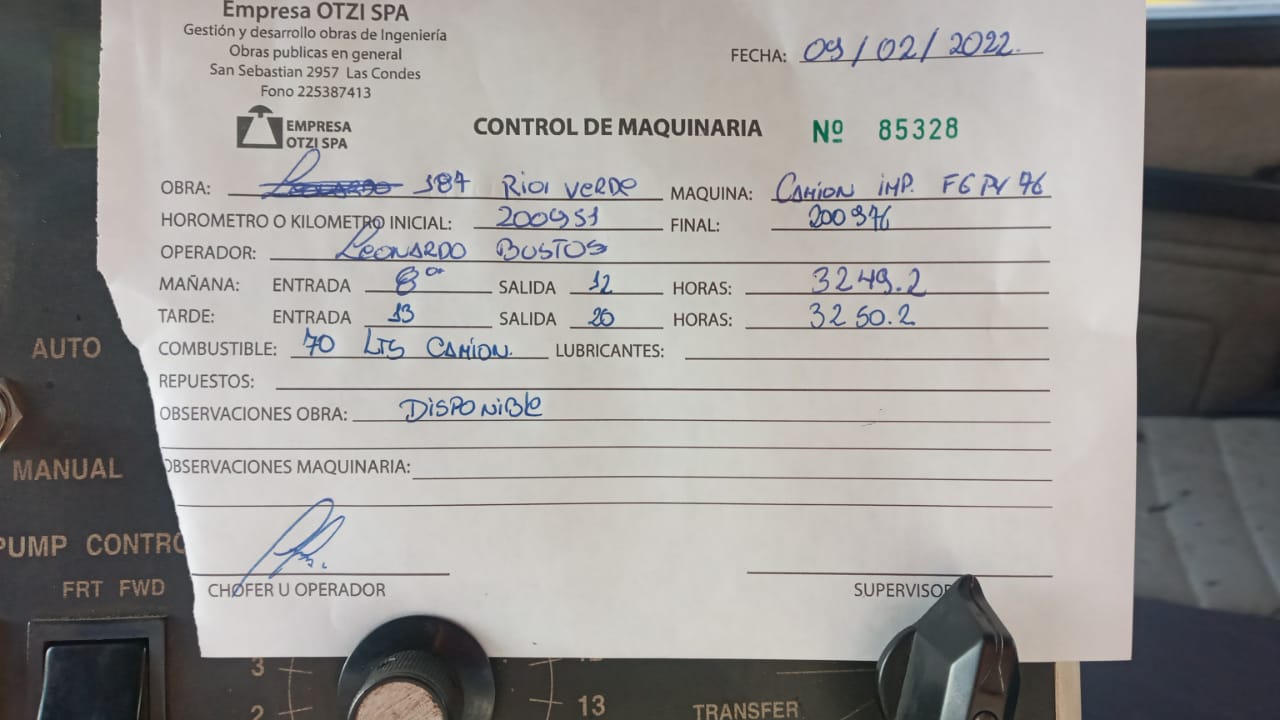 Empresa OTZI SPA
Gestión y desarrollo obras de Ingeniería
Obras publicas en general
San Sebastian 2957 Las Condes
Fono 225387413
FECHA: 09/02/2022.
EMPRESA OTZI SPA
CONTROL DE MAQUINARIA Nº 85328
OBRA: 387 Rioi VERDE MAQUINA: CAMION IMP. FGPV 76
HOROMETRO O KILOMETRO INICIAL: 200951 FINAL: 200976
OPERADOR: LEONARDO BUSTOS
MAÑANA: ENTRADA 8°° SALIDA 12 HORAS: 3249.2
TARDE: ENTRADA 13 SALIDA 20 HORAS: 3250.2
COMBUSTIBLE: 70 LTS CAMION. LUBRICANTES:
REPUESTOS:
OBSERVACIONES OBRA: DISPONIBLE
OBSERVACIONES MAQUINARIA:
CHOFER U OPERADOR SUPERVISOR
AUTO
MANUAL
PUMP CONTRO
FRT FWD
3
2
13
TRANSFER